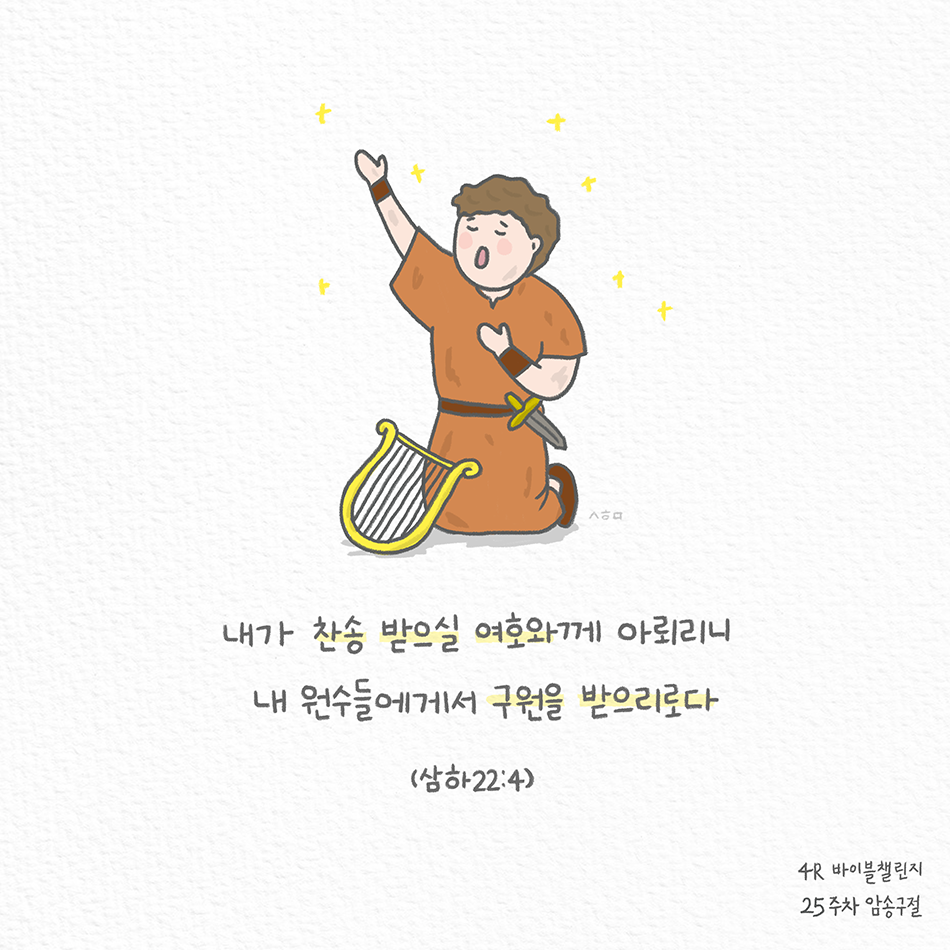 ㅅㅎㅁ
내가 찬송 받으실 여호와께 아뢰리니
내 원수들에게서 구원을 받으리로다
(삼하22:4)
4R 바이블챌린지
25주차 암송구절